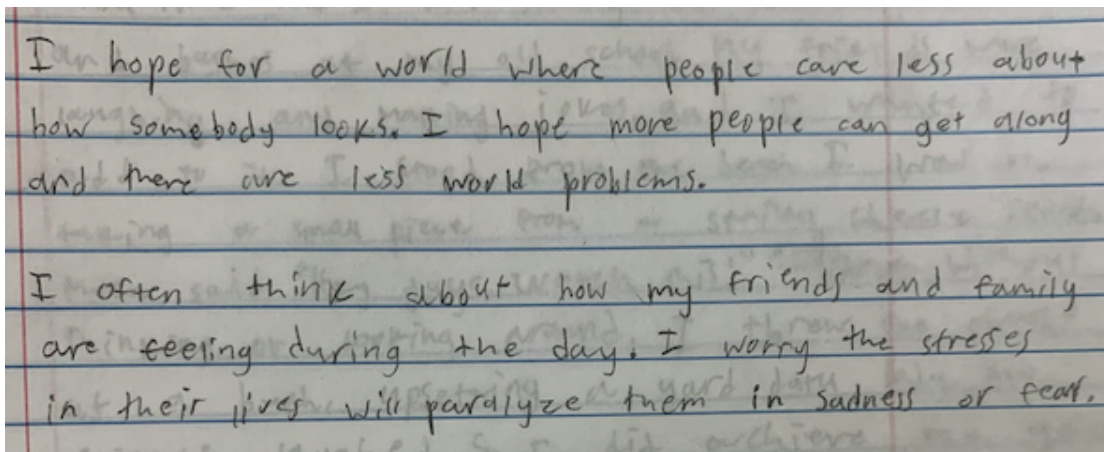 I hope for a world where people care less about
how somebody looks. I hope more people can get along
and there are less world problems.
I often think about how my friends and family
are feeling during the day. I worry the stresses
in their lives will paralyze them in sadness or fear.